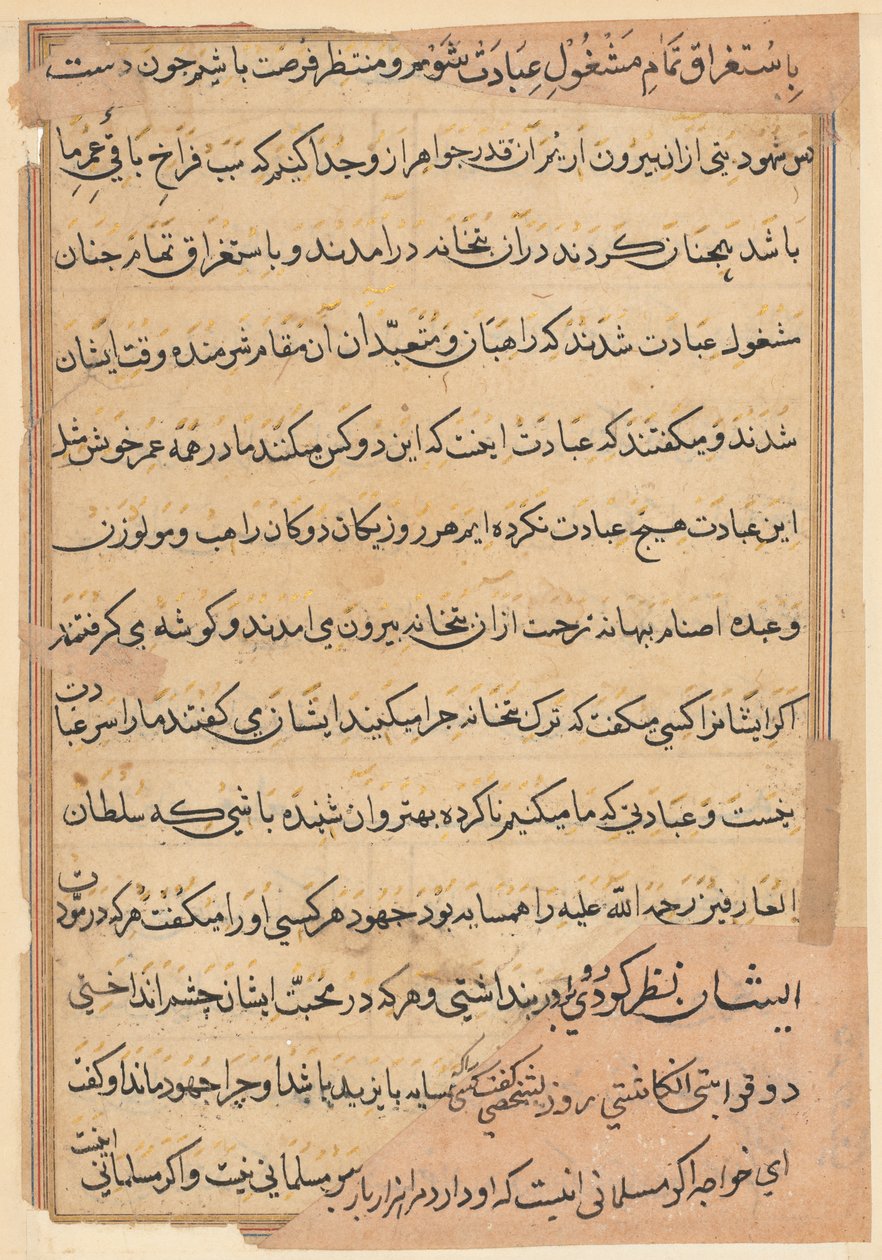 بِاسْتغراق تَمَامِ مَشْغُولِ عِبَادَتْ شَوْیم و منتظر فرُصت باشیم جون دست
شهود بتی ازان بیرون اریم ان قدر جواهر از وجدا کنیم که سَبَب فَرَاخِ بَاقیِ عُمرِ ما
بَاشَد همجنان کردند دَران بتخانه درامدند و باستغراق تمام جنان
مَشغول عبَادت شدند که راهبَان وَ مُتعبّدان ان مقام شرمنده وقت ایشان
شُدَند وَ میکفتند که عبَادَت اینست که این دو کس میکنند ما در همَه عمر خوَیش مثل
این عبَادت هیج عبادت نکرده ایم هر روز یکان دوکان راهب و مولوزن
و عبده اصنام بهانه زحمت ازان بتخانه بیرون می امدند و کوشه می کرفتند
اکر ایشانرا کسی میکفت که ترک بتخانه جرا میکنید ایشان می کفتند ما را سر عبادت
نیست و عبادتی که ما میکنیم ناکرده بهتر و ان شنیده باشی که سلطان
العارفین رحمة اللّه علیه را همسایه بود جهود هر کسی او را میکفت هر که در مودّت
ایشان نظر کردی بندَاشتی وَ هر که در محبّت ایشان چشم انداختی
دو قرابتی انکاشتی روز شخصی کفت کسی که همسایه بایزید باشد او چرا جهود ماند او کفت
ای خواجه اکر مسلمانی انیست که او دارد مرا نزار بار مسلمانی نیست و اکر مسلمانی اینست